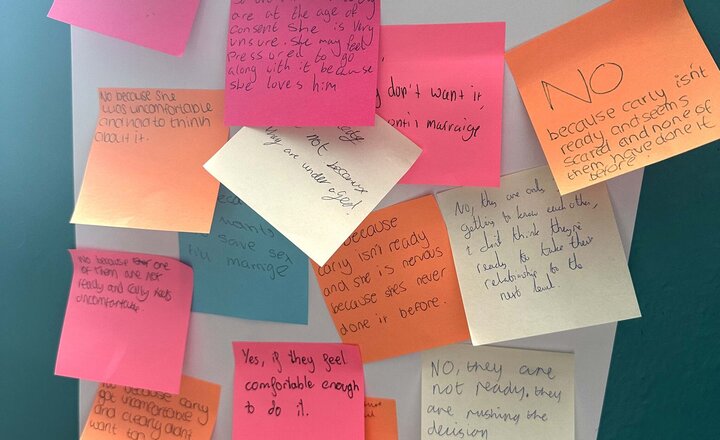 are at the age of
consent She is very
unsure. She may feel
pressured to go
along with it because
she loves him
don't want it,
until marraige
NO
because carly isn't
ready and seems
scared and none of
them have done it
before.
No because she
was uncomfortable
and had to think
about it.
not because
they are under aged!
wants
save sex
till marrige
because
carly isn't ready
and she is nervous
because shes never
done it before.
No, they are only
getting to know each other,
i don't think they're
ready to take their
relationship to the
next level.
No because one
of them are not
ready and Carly feels
uncomfortable
Yes, if they feel
comfortable enough
to do it.
NO, they are
not ready. they
are rushing the
decision
No because carly
got uncomfortable
and clearly didnt
want to